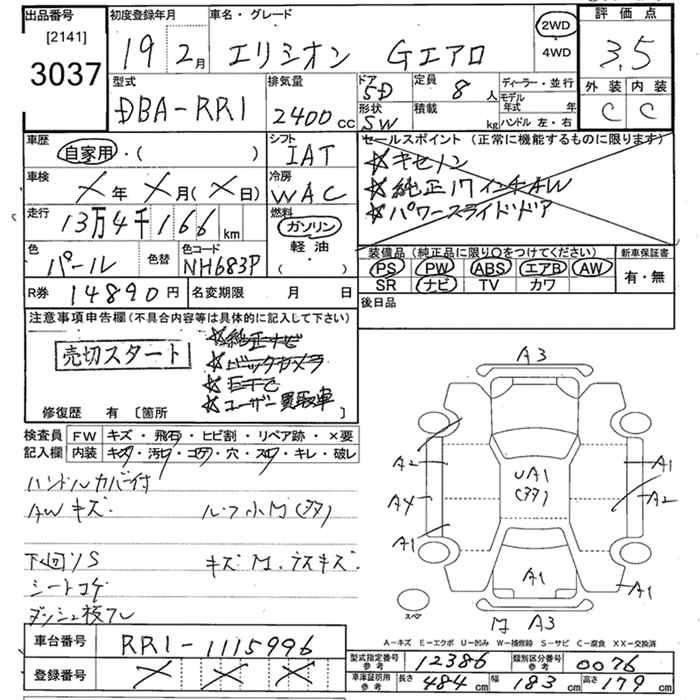 出品番号
[2141]
3037
初度登録年月
19 2月
車名・グレード
エリシオン Gエアロ
2WD
4WD
評価点
3.5
外装 内装
C C
型式
DBA-RR1
排気量
2400cc
ドア
5D
形状
SW
定員
8人
積載
kg
ディーラー・並行
モデル年式 年
ハンドル 左・右
車歴
自家用・( )
シフト
IAT
車検
×年×月(×日)
冷房
WAC
走行
13万4千166km
燃料
ガソリン
軽油
( )
色
パール
色替
色コード
NH683P
セールスポイント(正常に機能するものに限ります)
☆キセノン
☆純正17インチAW
☆パワースライドドア
装備品(純正品に限り○をつけてください)
PS PW ABS エアB AW
SR ナビ TV カワ
新車保証書
有・無
後日品
R券 14890円
名変期限 月 日
注意事項申告欄(不具合内容等は具体的に記入して下さい)
売切スタート
☆純正ナビ
☆バックカメラ
☆ETC
☆ユーザー買取車
修復歴 有 [箇所 ]
検査員記入欄
FW キズ・飛石・ヒビ割・リペア跡・×要
内装 キズ・汚レ・コゲ・穴・スレ・キレ・破レ
ハンドルカバー付
AWキズ ルーフ小M(多)
下回りS キズM、テスキズ
シートコゲ
ダッシュ枝フレ
A3
A2
A4
A1
UA1
(多)
A1
A2
A1
A1
スペア
M A3
A-キズ E-エクボ U-凹み W-補修跡 S-サビ C-腐食 XX-交換済
車台番号 RR1-1115996
登録番号 × × ×
型式指定番号参考 12386
類別区分番号参考 0076
車庫証明用参考 長さ 484cm 幅 183cm 高さ 179cm